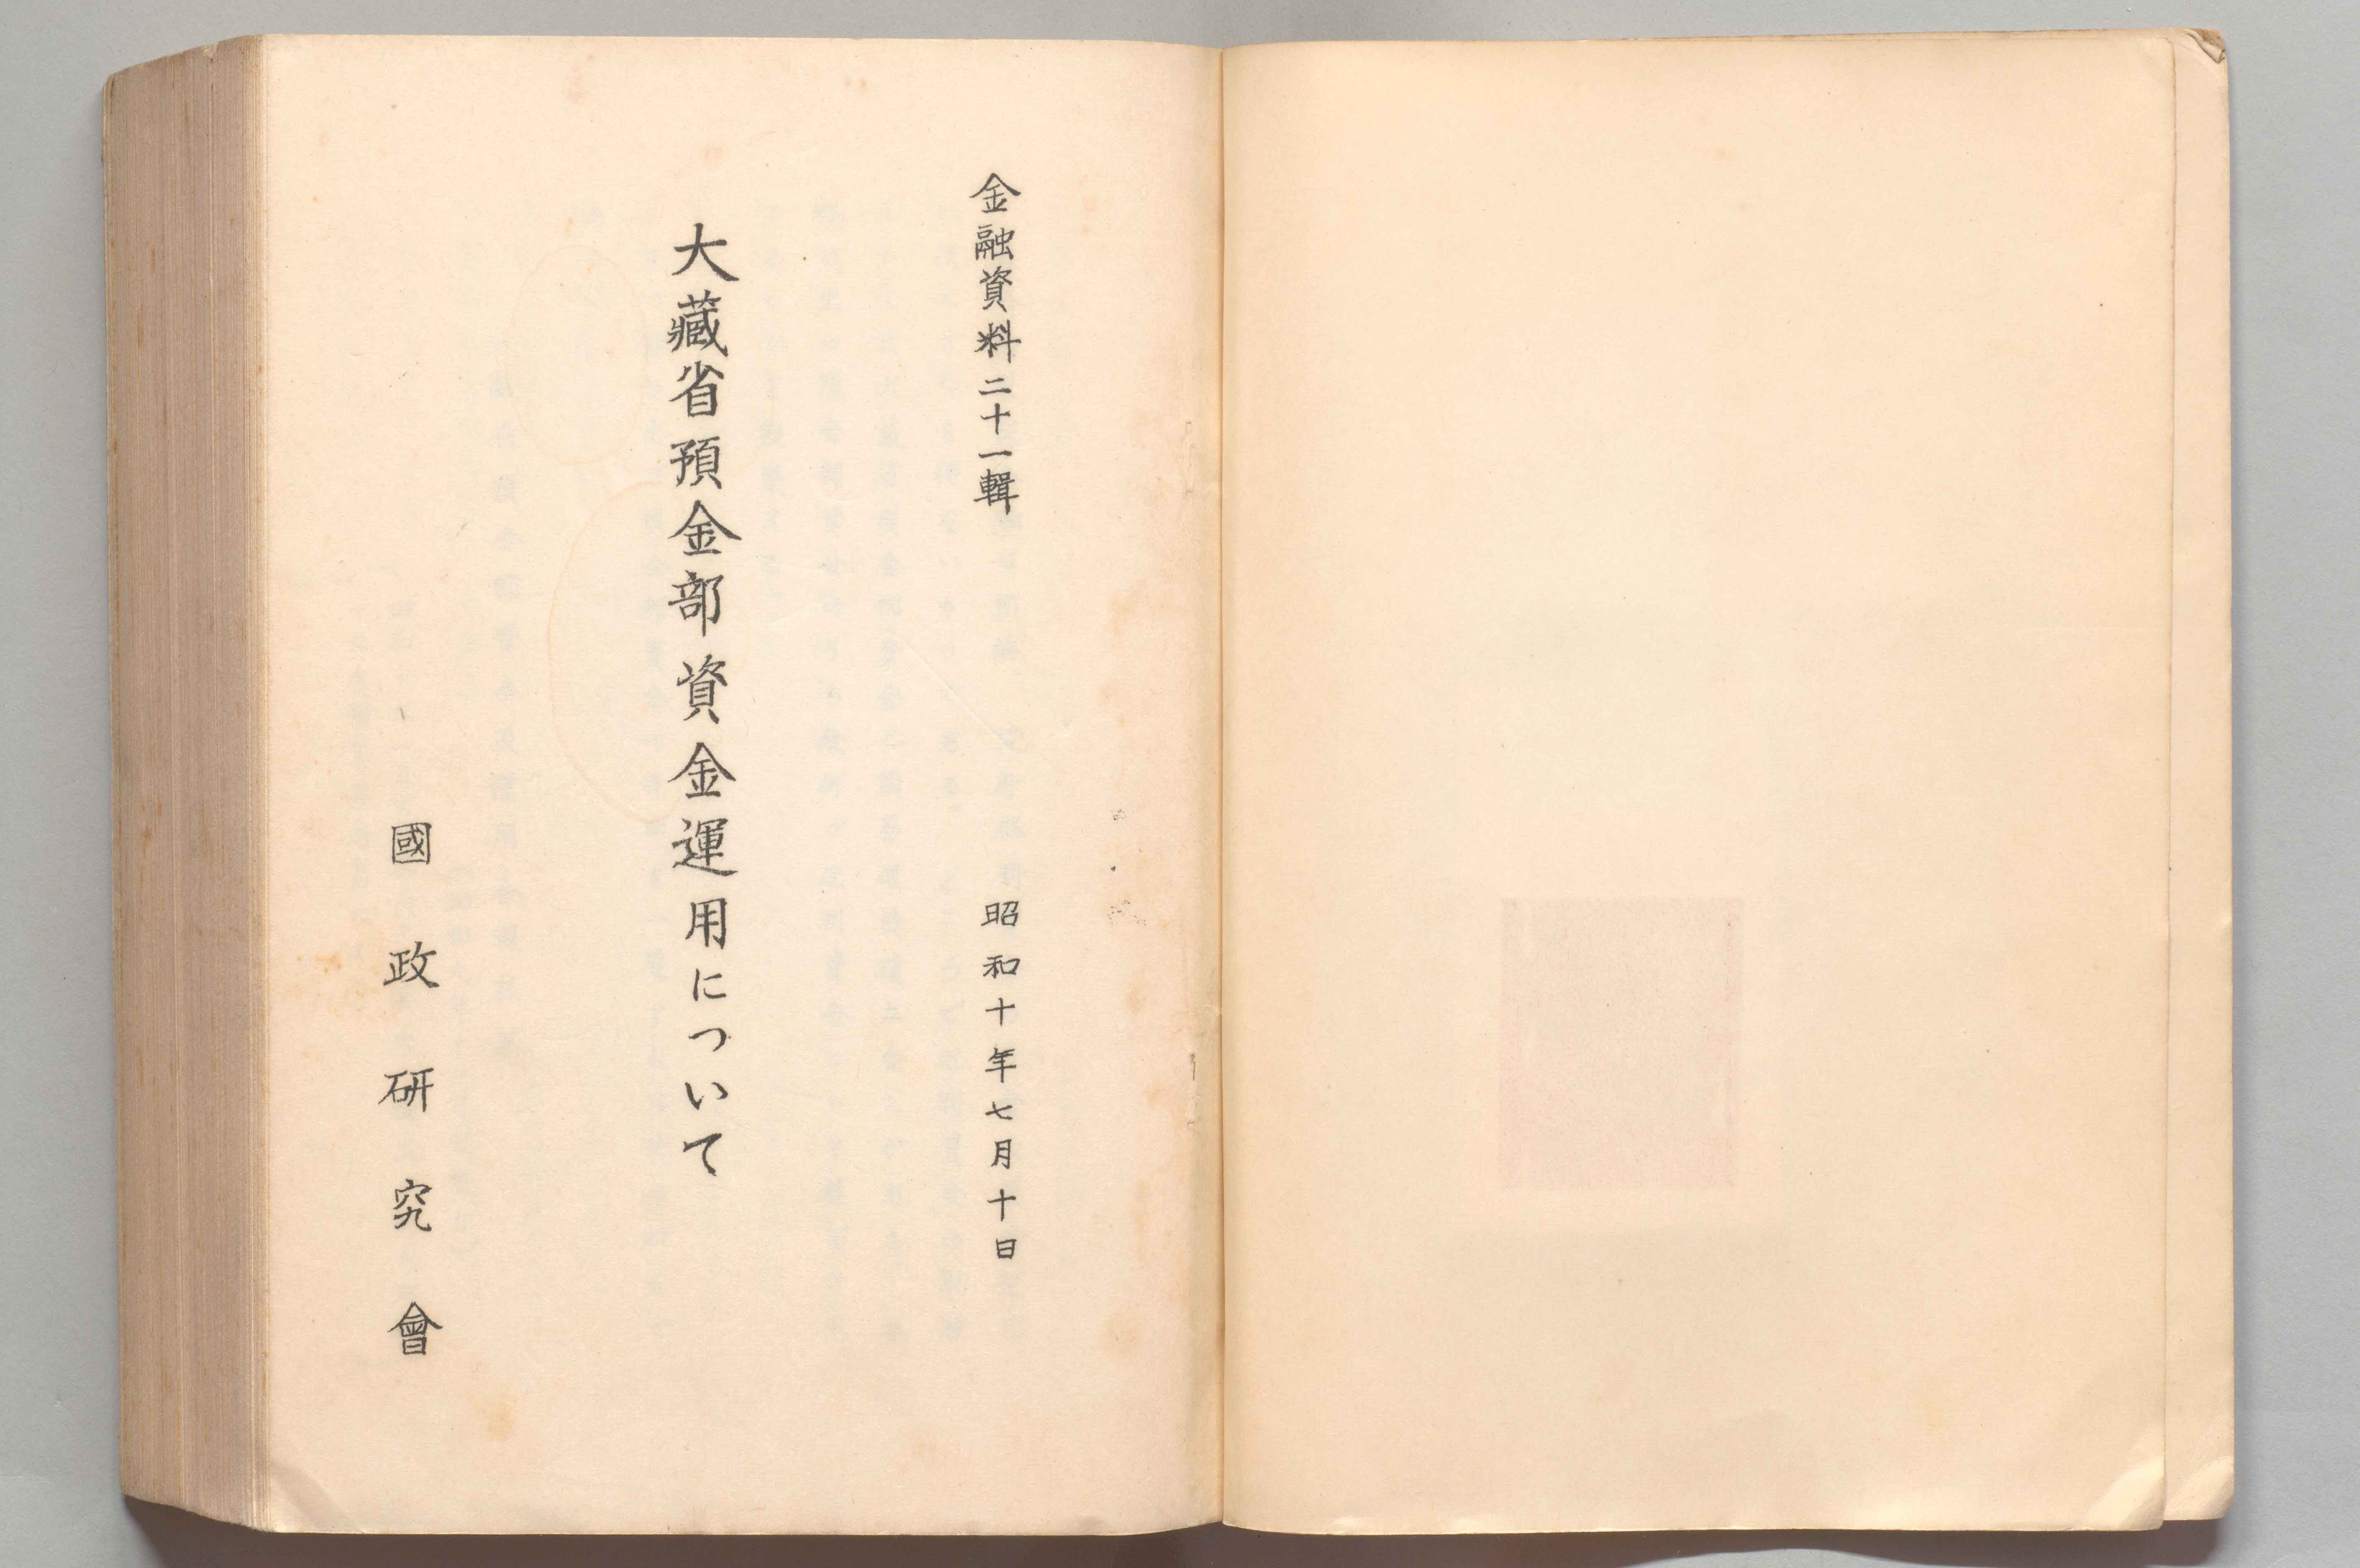 金融資料二十一輯
昭和十年七月十日
大藏省預金部資金運用について
國政研究會